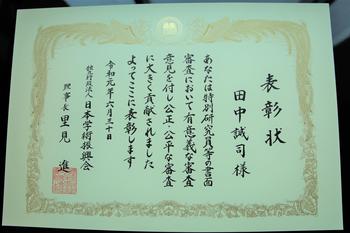 表彰状
田中誠司様
あなたは特別研究員等の書面
審査において有意義な審査
意見を付し公正・公平な審査
に大きく貢献されました
よってここに表彰します
令和元年六月三十日
独立行政法人日本学術振興会
理事長 里見 進